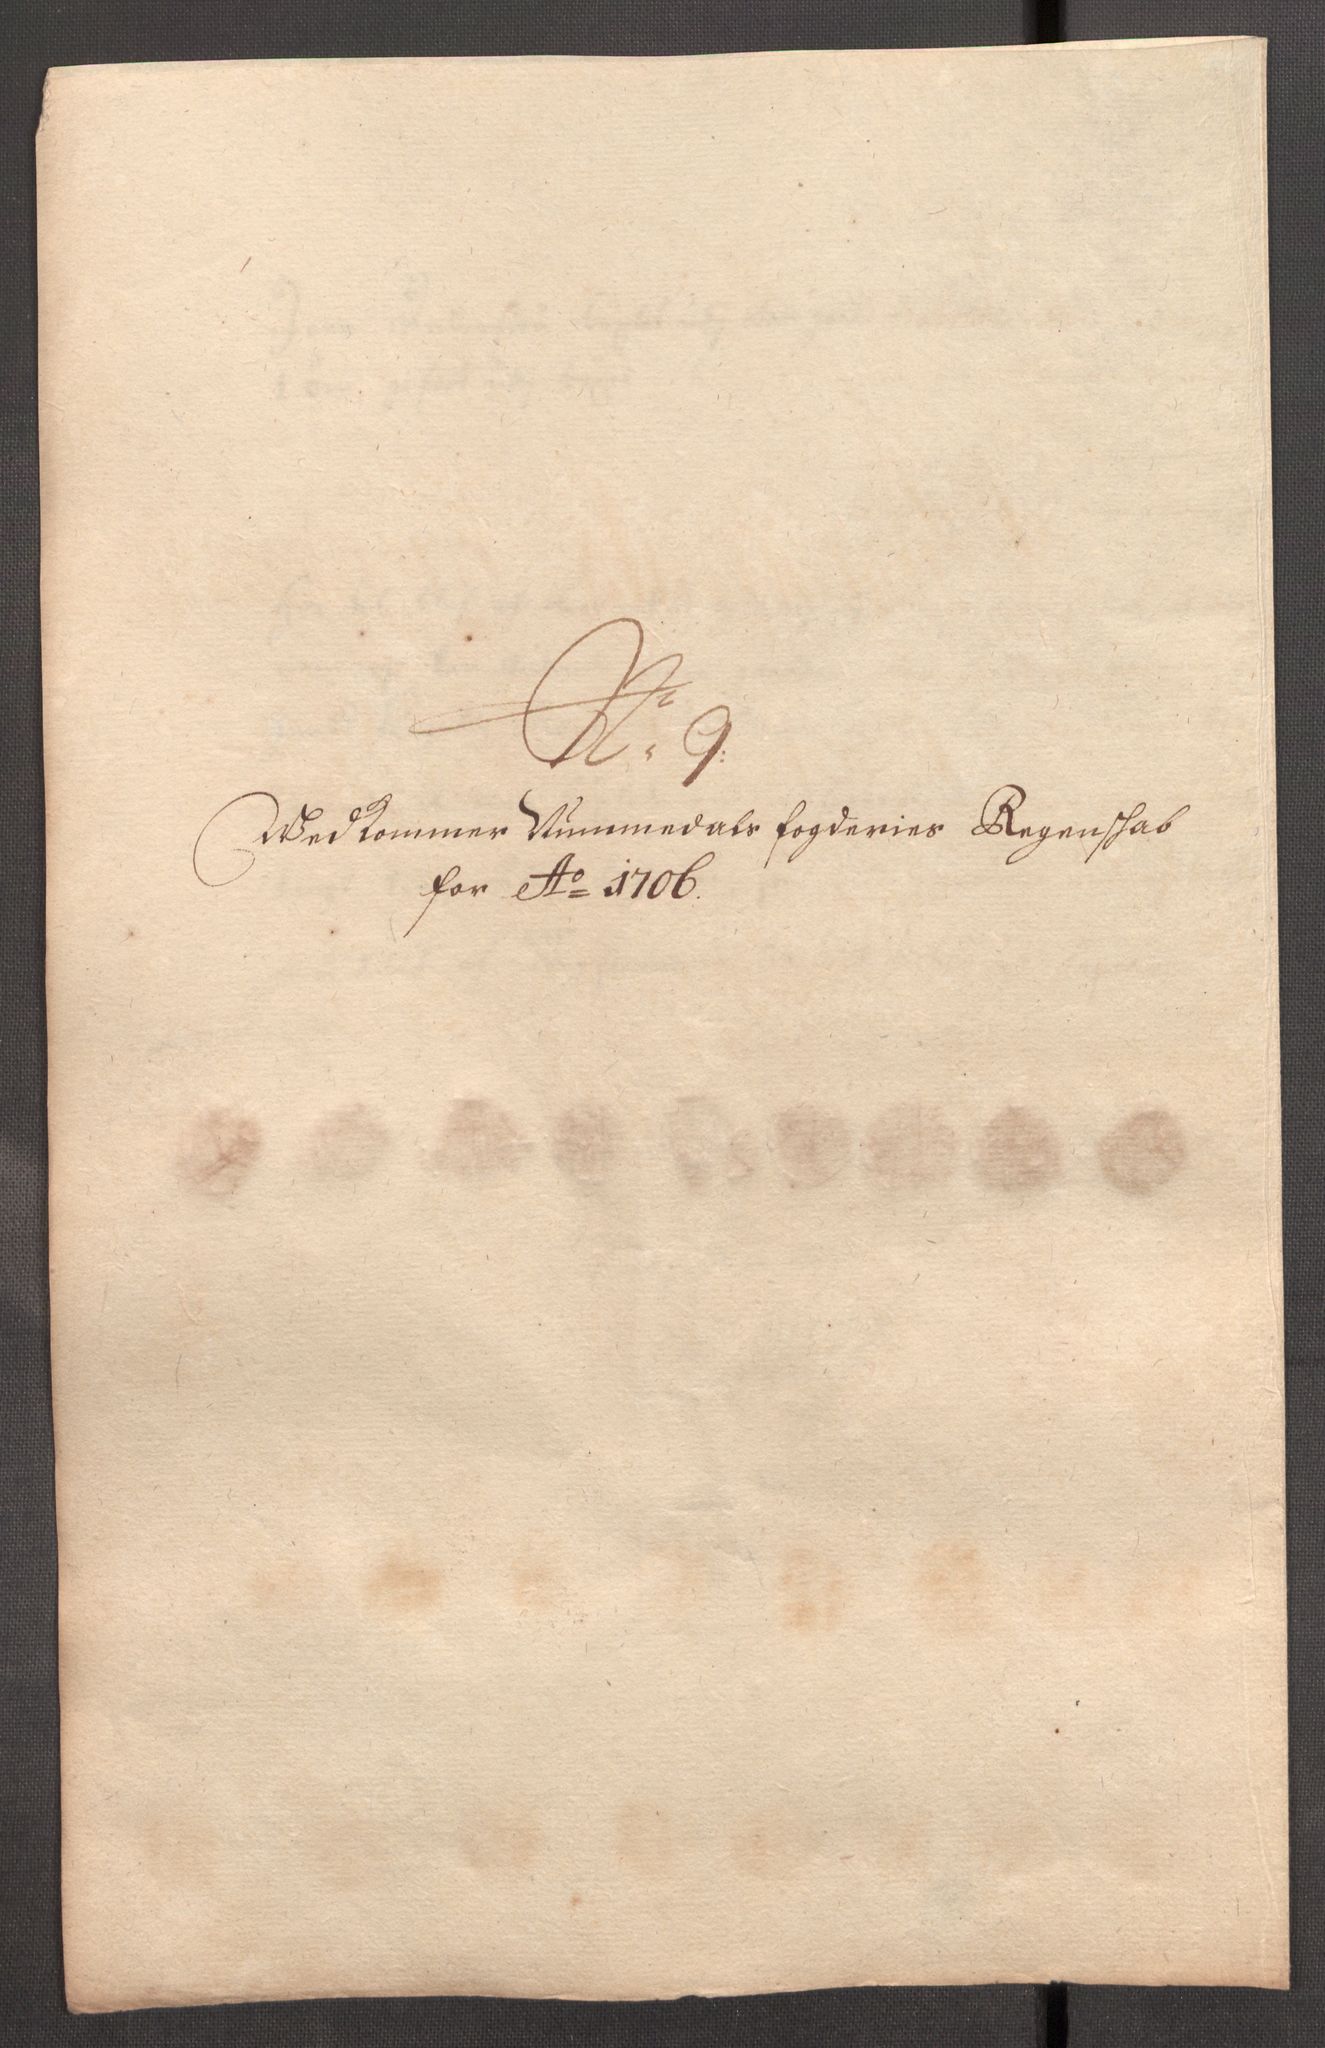 No. 9:
Wedkommer Nummedals fogderies Regenschab
for Ao 1706.